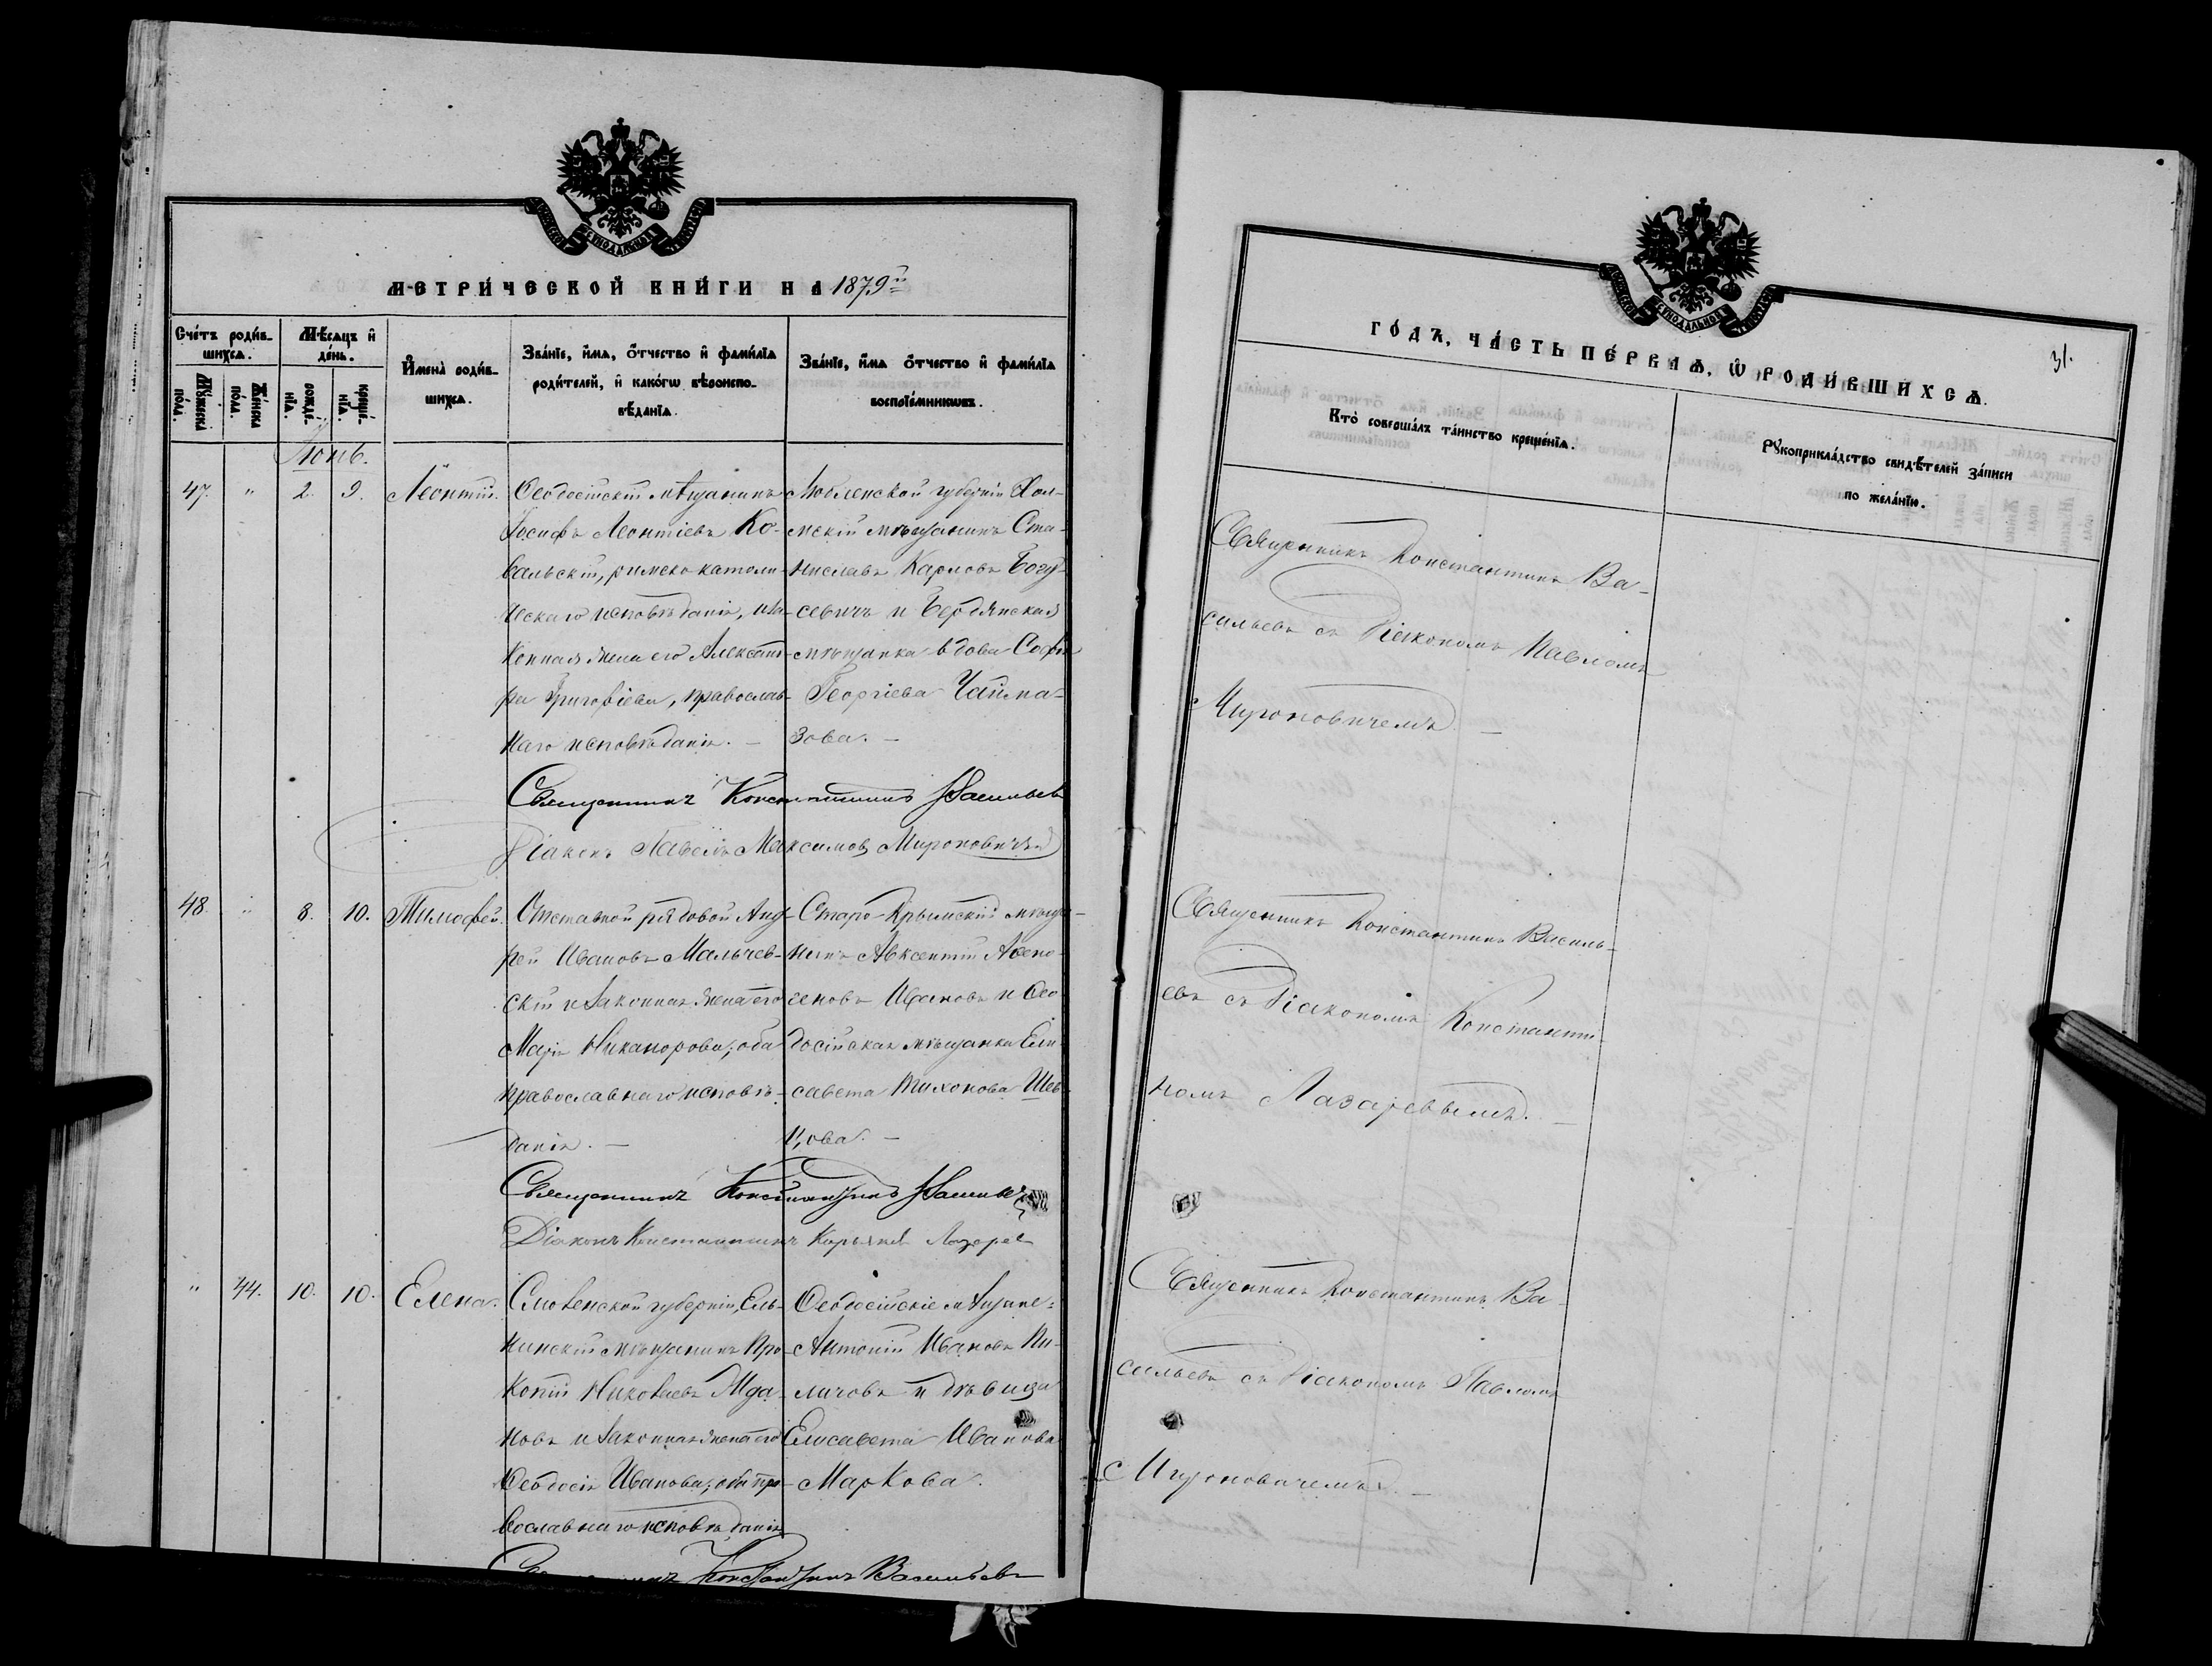 МЕТРИ́ЧЕСКОЙ КНИ́ГИ НА 1879й
Сче́тъ роди́в-
шихся.
Мѣ́сяцъ и҆
де́нь.
Мꙋ́жеска
по́ла.
Же́нска
по́ла.
рожде́-
нїѧ.
креще́-
нїѧ.
И҆мена̀ роди́в-
шихсѧ.
Зва́нїе, и҆́мѧ, ѻ҆́тчество и҆ фами́лїѧ
роди́телей, и҆ како́гѡ вѣроиспо-
вѣ́данїѧ.
Зва́нїе, и҆́мѧ ѻ҆́тчество и҆ фами́лїѧ
воспрїе́мникѡвъ.
Іюнь.
47. " 2. 9. Леонтій.
Ѳеодосійскій мѣщанинъ
Іосифъ Леонтіевъ Ко-
вальскій, римско-католи-
ческаго исповѣданія, и за-
конная жена его Александ-
ра Григоріева, православ-
наго исповѣданія. —
Люблинской губерніи Хол-
мскій мѣщанинъ Ста-
ниславъ Карловъ Богу-
севичъ и Бердянская
мѣщанка вдова Софія
Георгіева Чайма-
зова. —
Священникъ Константинъ Васильевъ
Діаконъ Павелъ Максимовъ Мироновичъ
48. " 8. 10. Тимофей.
Отставной рядовой Анд-
рей Ивановъ Мальчев-
скій и законная жена его
Марія Никанорова; оба
православнаго исповѣ-
данія. —
Старо-Крымскій мѣща-
нинъ Авксентій
Ивановъ и Ѳео-
досійская мѣщанка Ели-
савета Тихонова Шев-
цова. —
Священникъ Константинъ Васильевъ
Діаконъ Константинъ Лазарев
" 44. 10. 10. Елена.
Смоленской губерніи, Ель-
нинскій мѣщанинъ Про-
копій Николаевъ Жда-
новъ и законная жена его
Ѳеодосія Иванова; оба пра-
вославнаго исповѣданія
Ѳеодосійскіе мѣщане:
Антоній Ивановъ Пи-
личовъ и дѣвица
Елисавета Иванова
Маркова.
Священникъ Константинъ Васильевъ
ГО́ДЪ, ЧА́СТЬ ПЕ́РВАѦ, Ѡ҆ РОДИ́ВШИХСѦ.
31.
Кто̀ соверша́лъ та́инство креще́нїѧ.
Рꙋкоприкла́дство свидѣ́телей за́писи
по жела́нїю.
Священникъ Константинъ Ва-
сильевъ съ Діакономъ Павломъ
Мироновичемъ. —
Священникъ Константинъ Василь-
евъ съ Діакономъ Константи-
номъ Лазаревымъ. —
Священникъ Константинъ Ва-
сильевъ съ Діакономъ Павломъ
Мироновичемъ. —